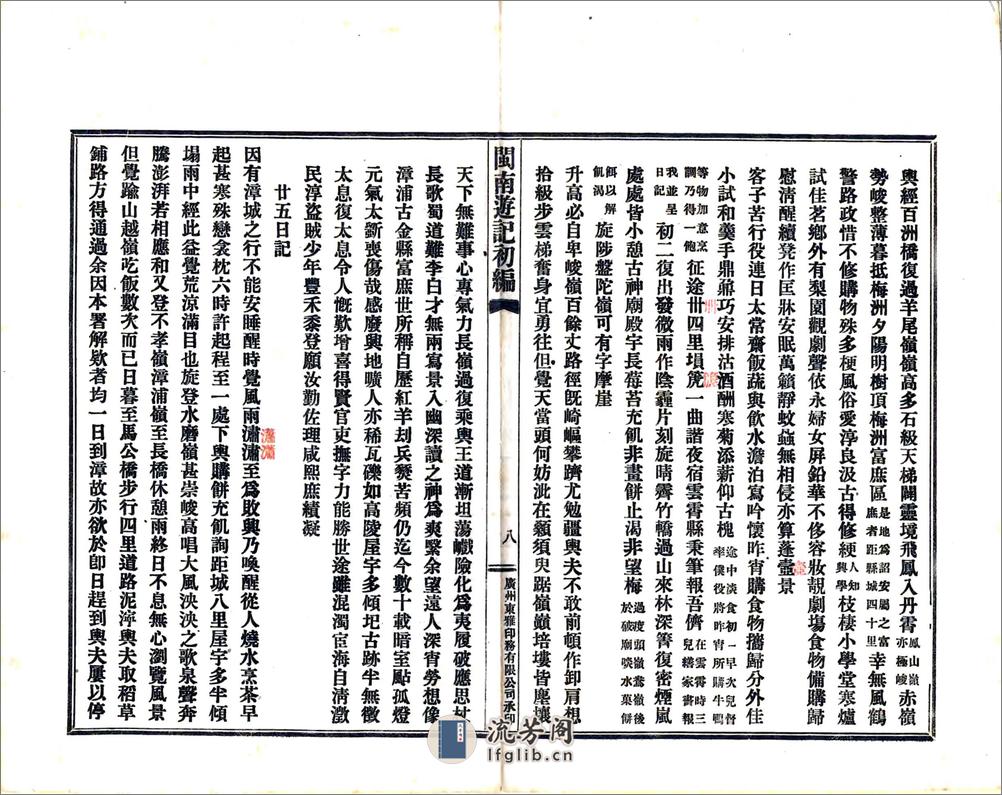 輿經百洲橋復過羊尾嶺嶺高多石級天梯闢靈境飛鳳入丹霄鳳山嶺亦極峻赤嶺
勢峻整薄暮抵梅洲夕陽明樹頂梅洲富庶區是地為詔安屬之富庶者距縣城四十里幸無風鶴
警路政惜不修購物殊多梗風俗愛淳良汲古得修綆人知興學枝棲小學堂寒爐
試佳茗鄉外有梨園觀劇聲依永婦女屏鉛華不侈容妝靚劇塲食物備購歸
慰清醒續凳作匡牀安眠萬籟靜蚊蝱無相侵亦算蓬壼景
壺
客子苦行役連日太常齋飯蔬與飲水澹泊寫吟懷昨宵購食物擕歸分外佳
小試和羹手鼎鼐巧安排沽酒酬寒菊添薪仰古槐途中淡食初一早次兒督率僕役將昨宵所購牛鴨
等物加意烹調乃得一飽征途卅四里塤箎一曲諧夜宿雲霄縣秉筆報吾儕在雲霄時三兒繕家書報
我並呈日記初二復出發微雨作陰霾片刻旋晴霽竹轎過山來林深箐復密煙嵐
處處皆小憩古神廟殿宇長莓苔充飢非畫餅止渴非望梅過度頭嶺鴦嶺後於破廟啖水菓餅
餌以解飢渴旋陟盤陀嶺可有字摩崖
升高必自卑峻嶺百餘丈路徑旣崎嶇攀躋尤勉疆輿夫不敢前頓作卸肩想
拾級步雲梯奮身宜勇往但覺天當頭何妨泚在顙須臾踞嶺巔培塿皆塵壤
閩南遊記初編
八
廣州東雅印務有限公司承印
天下無難事心專氣力長嶺過復乘輿王道漸坦蕩巇險化爲夷履破應思杖
長歌蜀道難李白才無兩寫景入幽深讀之神爲爽繄余望遠人深宵勞想像
漳浦古金縣富庶世所稱自歷紅羊刦兵燹苦頻仍迄今數十載暗室點孤燈
元氣太斲喪傷哉感廢興地曠人亦稀瓦礫如高陵屋宇多傾圮古跡半無徵
太息復太息令人慨歎增喜得賢官吏撫字力能勝世途雖混濁宦海自清澂
民淳盜賊少年豐禾黍登願汝勤佐理咸熙庶績凝
廿五日記
因有漳城之行不能安睡醒時覺風雨瀟瀟至爲敗興乃喚醒從人燒水烹茶早
瀟瀟
起甚寒殊戀衾枕六時許起程至一處下輿購餅充飢詢距城八里屋宇多半傾
塌雨中經此益覺荒涼滿目也旋登水磨嶺甚崇峻高唱大風泱泱之歌泉聲奔
騰澎湃若相應和又登不孝嶺漳浦嶺至長橋休憩雨終日不息無心瀏覽風景
但覺踰山越嶺吃飯數次而已日暮至馬公橋步行四里道路泥濘輿夫取稻草
鋪路方得通過余因本署解欵者均一日到漳故亦欲於即日趕到輿夫屢以停
流芳閣
lfglib.cn